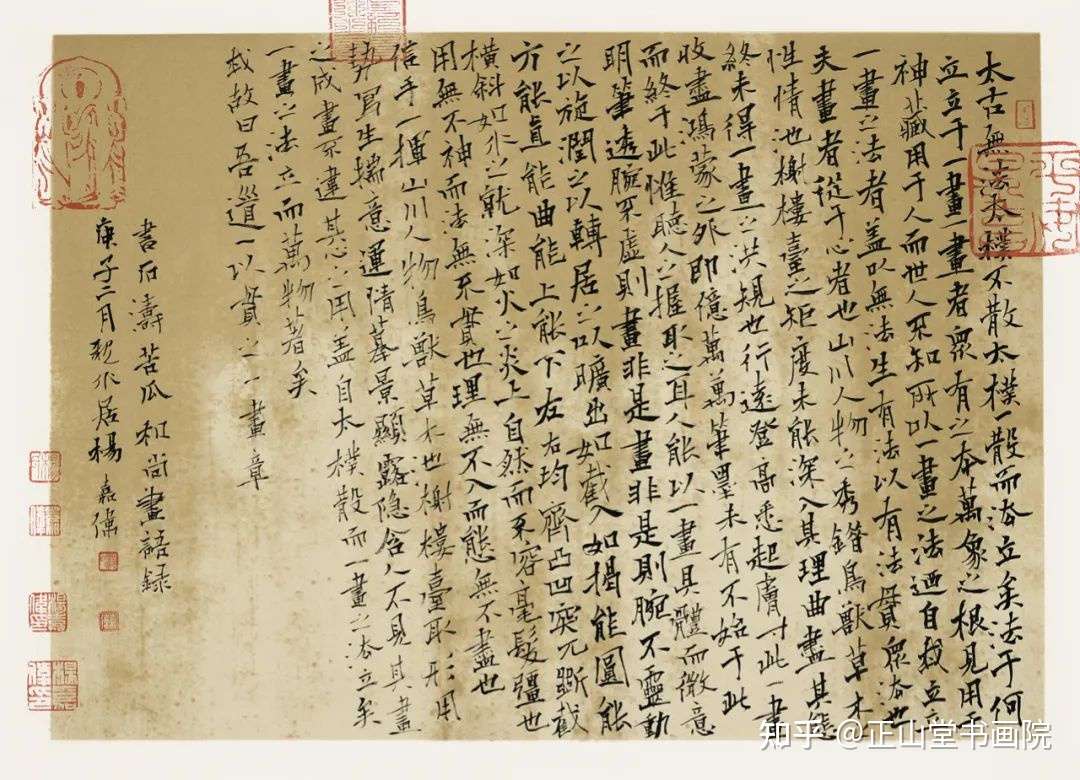 太古無法太樸不散太樸一散而法立矣法于何
立立于一畫一畫者眾有之本萬象之根見用于
神藏用于人而世人不知所以一畫之法迺自我立立
一畫之法者蓋以無法生有法以有法貫眾法也
夫畫者從于心者也山川人物之秀錯鳥獸草木
性情池榭樓臺之矩度未能深入其理曲盡其態
終未得一畫之洪規也行遠登高悉起膚寸此一畫
收盡鴻蒙之外即億萬萬筆墨未有不始于此
而終于此惟聽人之握取之耳人能以一畫具體而微意
明筆透腕不虛則畫非是畫非是則腕不靈動
之以旋潤之以轉居之以曠出如截入如揭能圓能
方能直能曲能上能下左右均齊凸凹突兀斷截
橫斜如水之就深如火之炎上自然而不容毫髮彊也
用無不神而法無不貫也理無不入而態無不盡也
信手一揮山川人物鳥獸草木池榭樓臺取形用
勢寫生揣意運情摹景顯露隱含人不見其畫
之成畫不違其心之用蓋自太樸散而一畫之法立矣
一畫之法立而萬物著矣
我故曰吾道一以貫之一畫章
書石濤苦瓜和尚畫語録
庚子二月觀水居楊嘉偉
知乎 @正山堂书画院